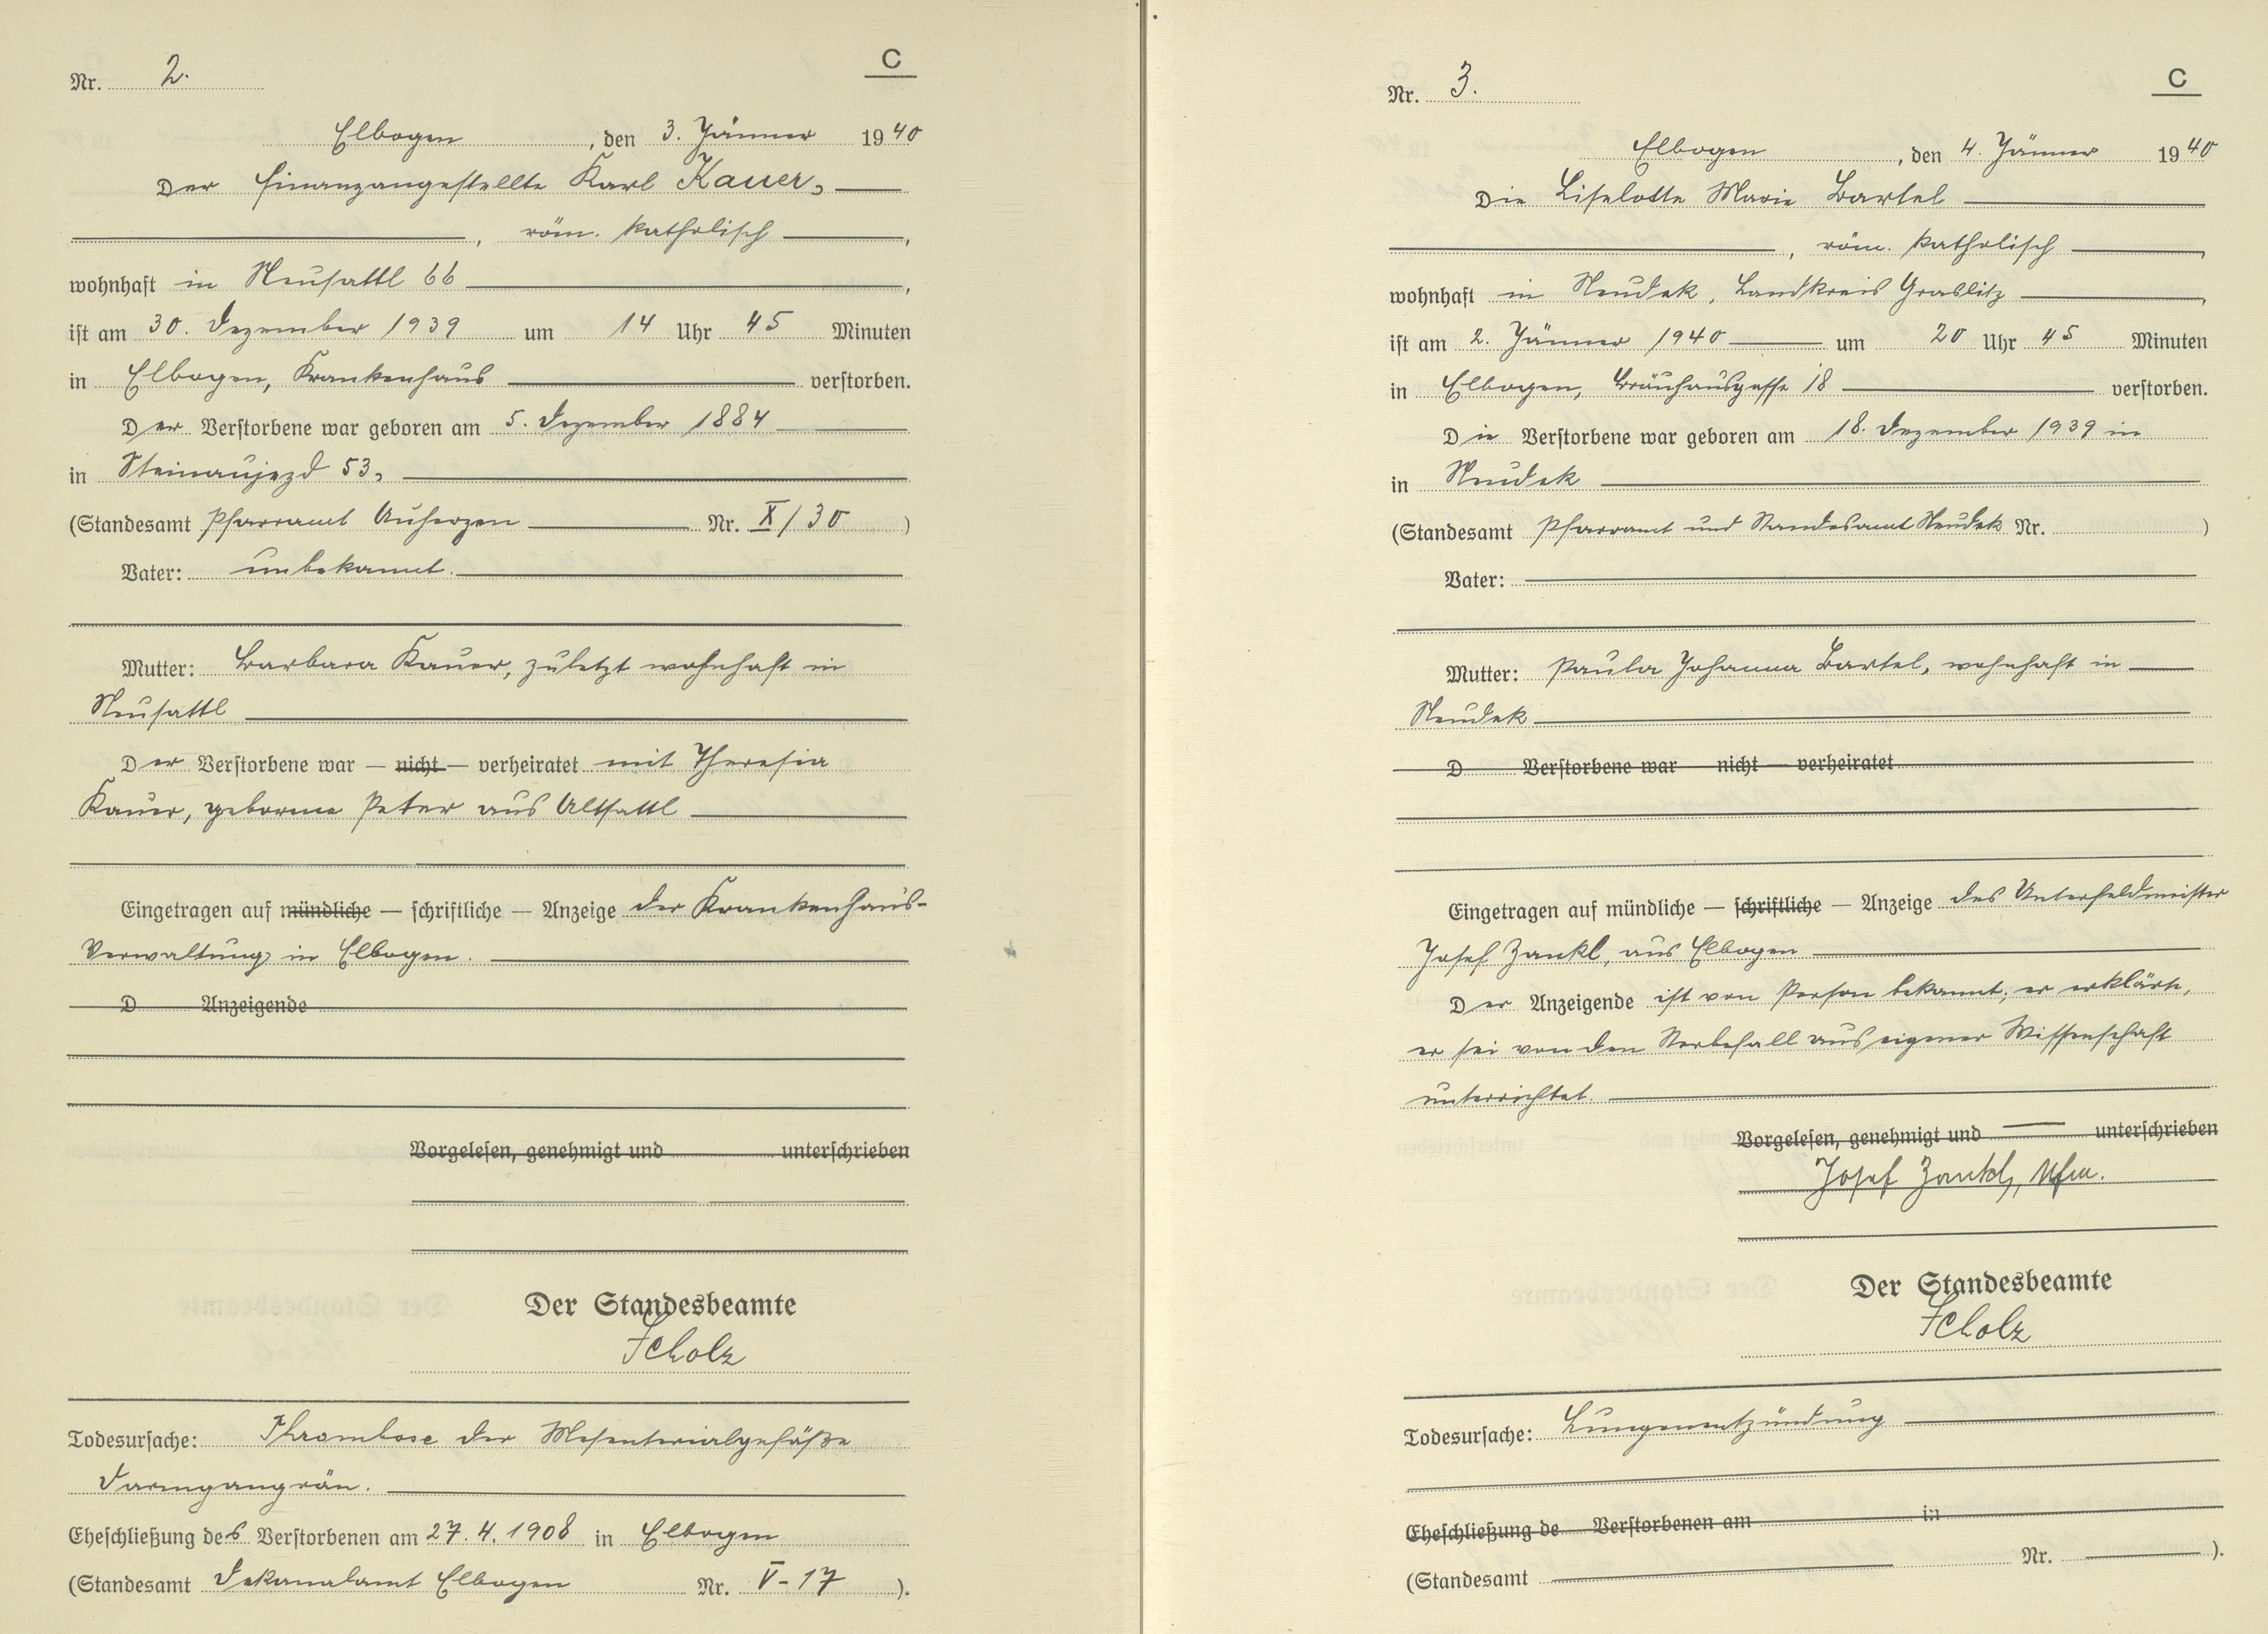 C
Nr. 2.
Elbogen, den 3. Jänner 1940
Der Finanzangestellte Karl Kauer,
, röm. katholisch,
wohnhaft in Neusattl 66,
ist am 30. Dezember 1939 um 14 Uhr 45 Minuten
in Elbogen, Krankenhaus verstorben.
Der Verstorbene war geboren am 5. Dezember 1884
in Steinaujezd 53,
(Standesamt Pfarramt Auherzen Nr. X/30)
Vater: unbekannt.
Mutter: Barbara Kauer, zuletzt wohnhaft in
Neusattl
Der Verstorbene war — nicht — verheiratet mit Theresia
Kauer, geborene Peter aus Altsattl
Eingetragen auf mündliche — schriftliche — Anzeige der Krankenhaus-
Verwaltung in Elbogen.
D Anzeigende
Vorgelesen, genehmigt und unterschrieben
Der Standesbeamte
Scholz
Todesursache: Thrombose der Mesenterialgefäße
Darmgangrän.
Eheschließung des Verstorbenen am 27.4.1908 in Elbogen
(Standesamt Dekanalamt Elbogen Nr. V-17).
C
Nr. 3.
Elbogen, den 4. Jänner 1940
Die Liselotte Marie Bartel
, röm. katholisch,
wohnhaft in Neudek, Landkreis Graslitz,
ist am 2. Jänner 1940 um 20 Uhr 45 Minuten
in Elbogen, Bräuhausgasse 18 verstorben.
Die Verstorbene war geboren am 18. Dezember 1939 in
in Neudek
(Standesamt Pfarramt und Standesamt Neudek Nr. )
Vater:
Mutter: Paula Johanna Bartel, wohnhaft in
Neudek
D Verstorbene war nicht — verheiratet
Eingetragen auf mündliche — schriftliche — Anzeige des Unterfeldmeister
Josef Zankl, aus Elbogen
Der Anzeigende ist von Person bekannt; er erklärte,
er sei von den Sterbefall aus eigener Wissenschaft
unterrichtet.
Vorgelesen, genehmigt und unterschrieben
Josef Zankl, Ufm.
Der Standesbeamte
Scholz
Todesursache: Lungenentzündung
Eheschließung de Verstorbenen am in
(Standesamt Nr. ).